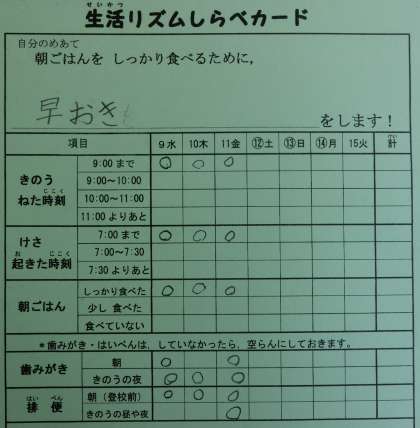 せいかつ
生活リズムしらべカード
自分のめあて
朝ごはんを しっかり食べるために，
早おき
をします！
項目 9水 10木 11金 ⑫土 ⑬日 ⑭月 15火 計
きのう ねた時刻
9:00 まで ○ ○ ○
9:00～10:00
10:00～11:00
11:00 よりあと
けさ 起きた時刻
7:00 まで ○ ○ ○
7:00～7:30
7:30 よりあと
朝ごはん
しっかり食べた ○ ○ ○
少し 食べた
食べていない
＊歯みがき・はいべんは，していなかったら，空らんにしておきます。
歯みがき
朝 ○ ○
きのうの夜 ○ ○ ○
はい べん
排便
朝（登校前） ○ ○ ○
きのうの昼や夜 ○